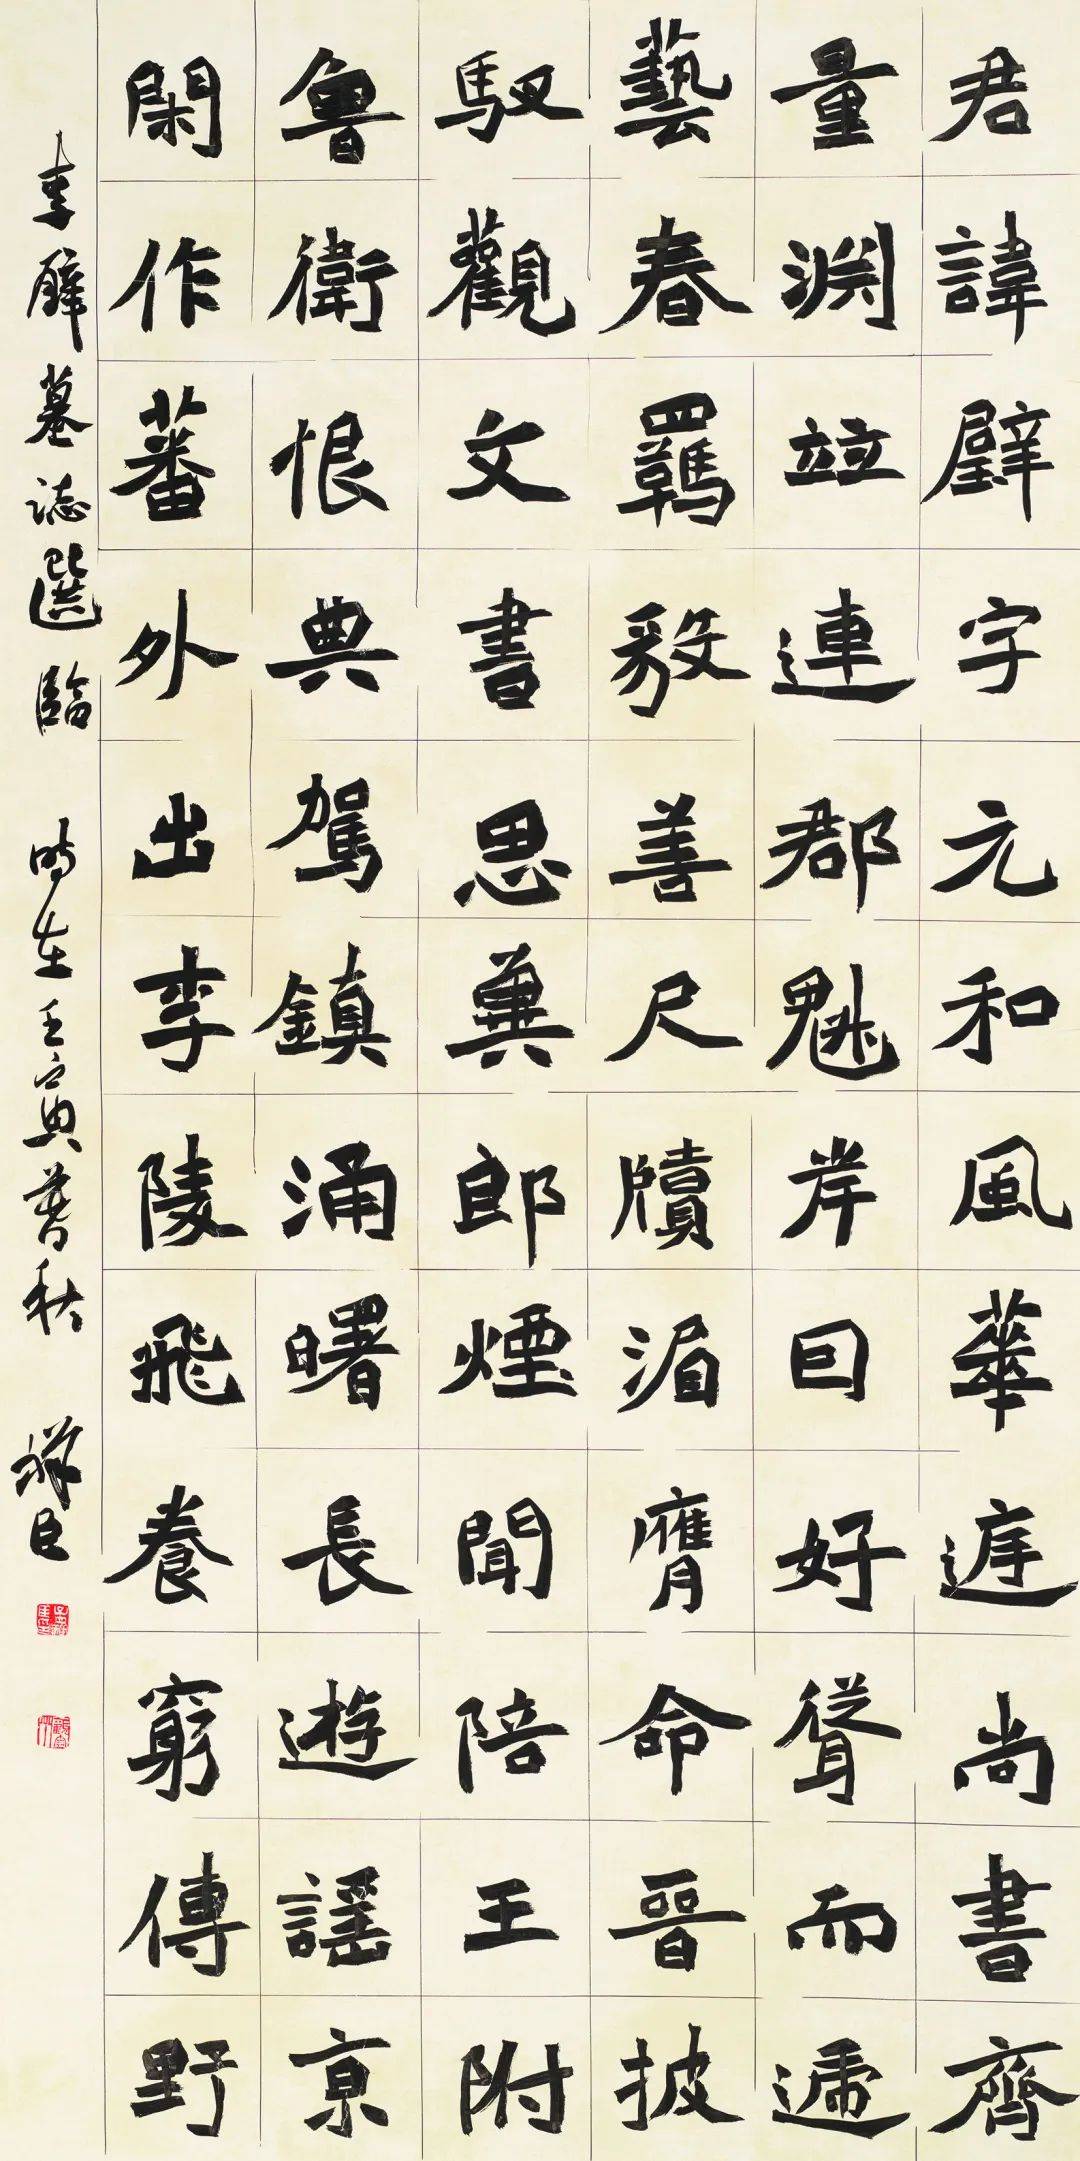 君諱璧字元和風華尚書齊
量淵竝連郡魁岸回好聳而遞
藝春羈善尺牘湄膺命晉披
馭觀文書思冀郎煙聞陪王附
魯衛恨典駕鎮涌曙長遊謡京
閑作蕃外出李陵飛養窮傳野
李璧墓誌選臨 時在壬寅暮秋 祥臣